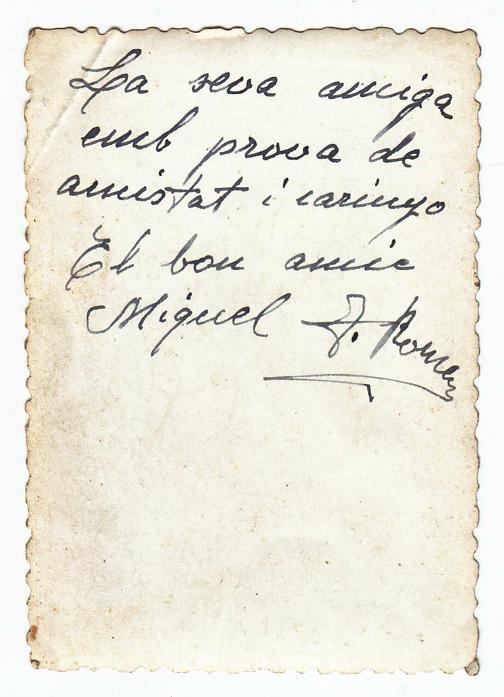 La seva amiga
emb prova de
amistat i carinyo
El bon amic
Miquel J. Romeu